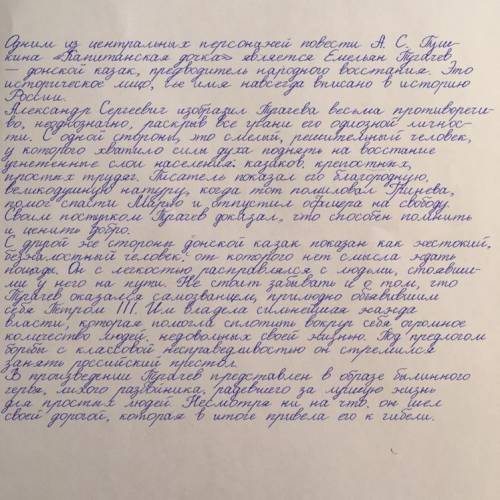 Одним из центральных персонажей повести А. С. Пуш-
кина «Капитанская дочка» является Емельян Пугачев
— донской казак, предводитель народного восстания. Это
историческое лицо, чье имя навсегда вписано в историю
России.
Александр Сергеевич изобразил Пугачева весьма противоречи-
во, неоднозначно, раскрыв все грани его одиозной личнос-
ти. С одной стороны, это смелый, решительный человек,
у которого хватило силы духа поднять на восстание
угнетенные слои населения: казаков, крепостных,
простых трудяг. Писатель показал его благородную,
великодушную натуру, когда тот помиловал Гринева,
помог спасти Марью и отпустил офицера на свободу.
Своим поступком Пугачев доказал, что способен помнить
и ценить добро.
С другой же стороны донской казак показан как жестокий,
безжалостный человек, от которого нет смысла ждать
пощады. Он с легкостью расправлялся с людьми, стоявши-
ми у него на пути. Не стоит забывать и о том, что
Пугачев оказался самозванцем, прилюдно объявившим
себя Петром III. Им владела сильнейшая жажда
власти, которая помогла сплотить вокруг себя огромное
количество людей, недовольных своей жизнью. Под предлогом
борьбы с классовой несправедливостью он стремился
занять российский престол.
В произведении Пугачев представлен в образе былинного
героя, лихого разбойника, радевшего за лучшую жизнь
для простых людей. Несмотря ни на что, он шел
своей дорогой, которая в итоге привела его к гибели.